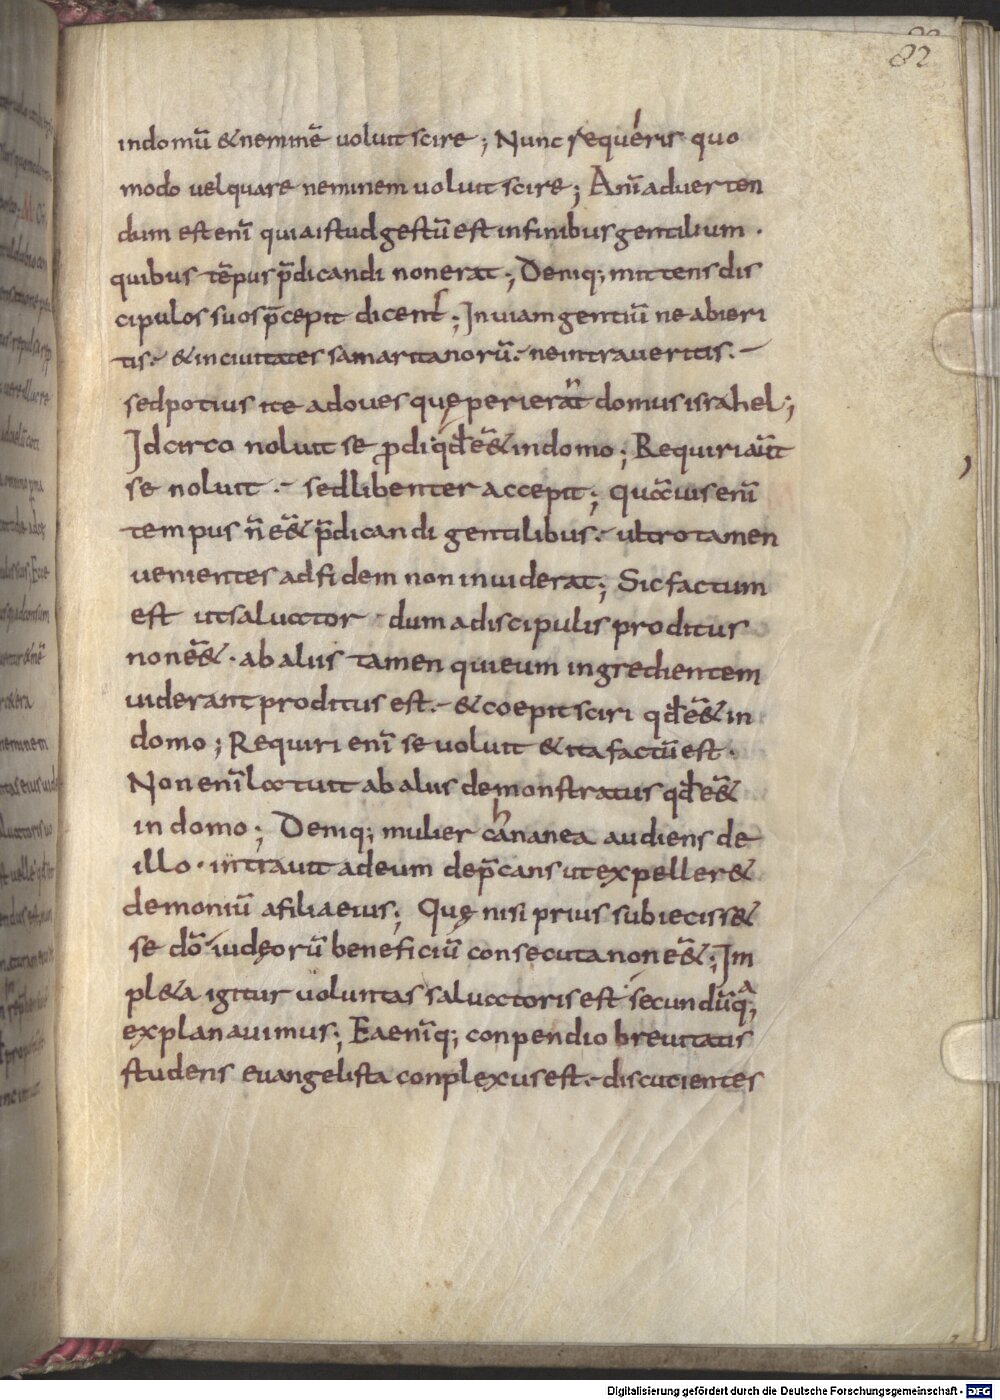 82
indomū &neminē uoluit scire ; Nunc requeris quo
modo uel quare neminem uoluit scire ; Anīaduerten
dum est enī quia istud gestū est in finibus gentilium ·
quibus tēpus p̄dicandi non erat ; Deniq; mittens dis
cipulos suos p̄cepit dicens ; In uiam gentiū ne abieri
tis · & in ciuitates samaritanorū · ne intraueritis ·
sed potius ite ad oues quę perierant domus israhel ;
Idcirco noluit se ꝓdi qđ eēt& in domo ; Requiri aūt
se noluit · sed libenter accepit ; quāuis enī
tempus n̄ eē& p̄dicandi gentilibus · ultro tamen
uenientes ad fidem non inuiderat ; Sic factum
est ut saluator dum a discipulis proditus
non eē& · ab aliis tamen qui eum ingredientem
uiderant proditus est · & coepit sciri qđ eē& in
domo ; Requiri enī se uoluit & ita factū est ·
Non enī latuit ab aliis demonstratus qđ eē&
in domo ; Deniq; mulier chananea audiens de
illo · intrauit ad eum dep̄cans ut expeller&
demoniū a filia eius ; Quę nisi prius subiecisse&
se dō iudęorū beneficiū consecuta non eē& ; Im
pl&a igitur uoluntas saluatoris est secundū q;a
explanauimus ; Ea enīq; conpendio breuitatis
studens euangelista conplexus est · discutientes
Digitalisierung gefördert durch die Deutsche Forschungsgemeinschaft - DFG